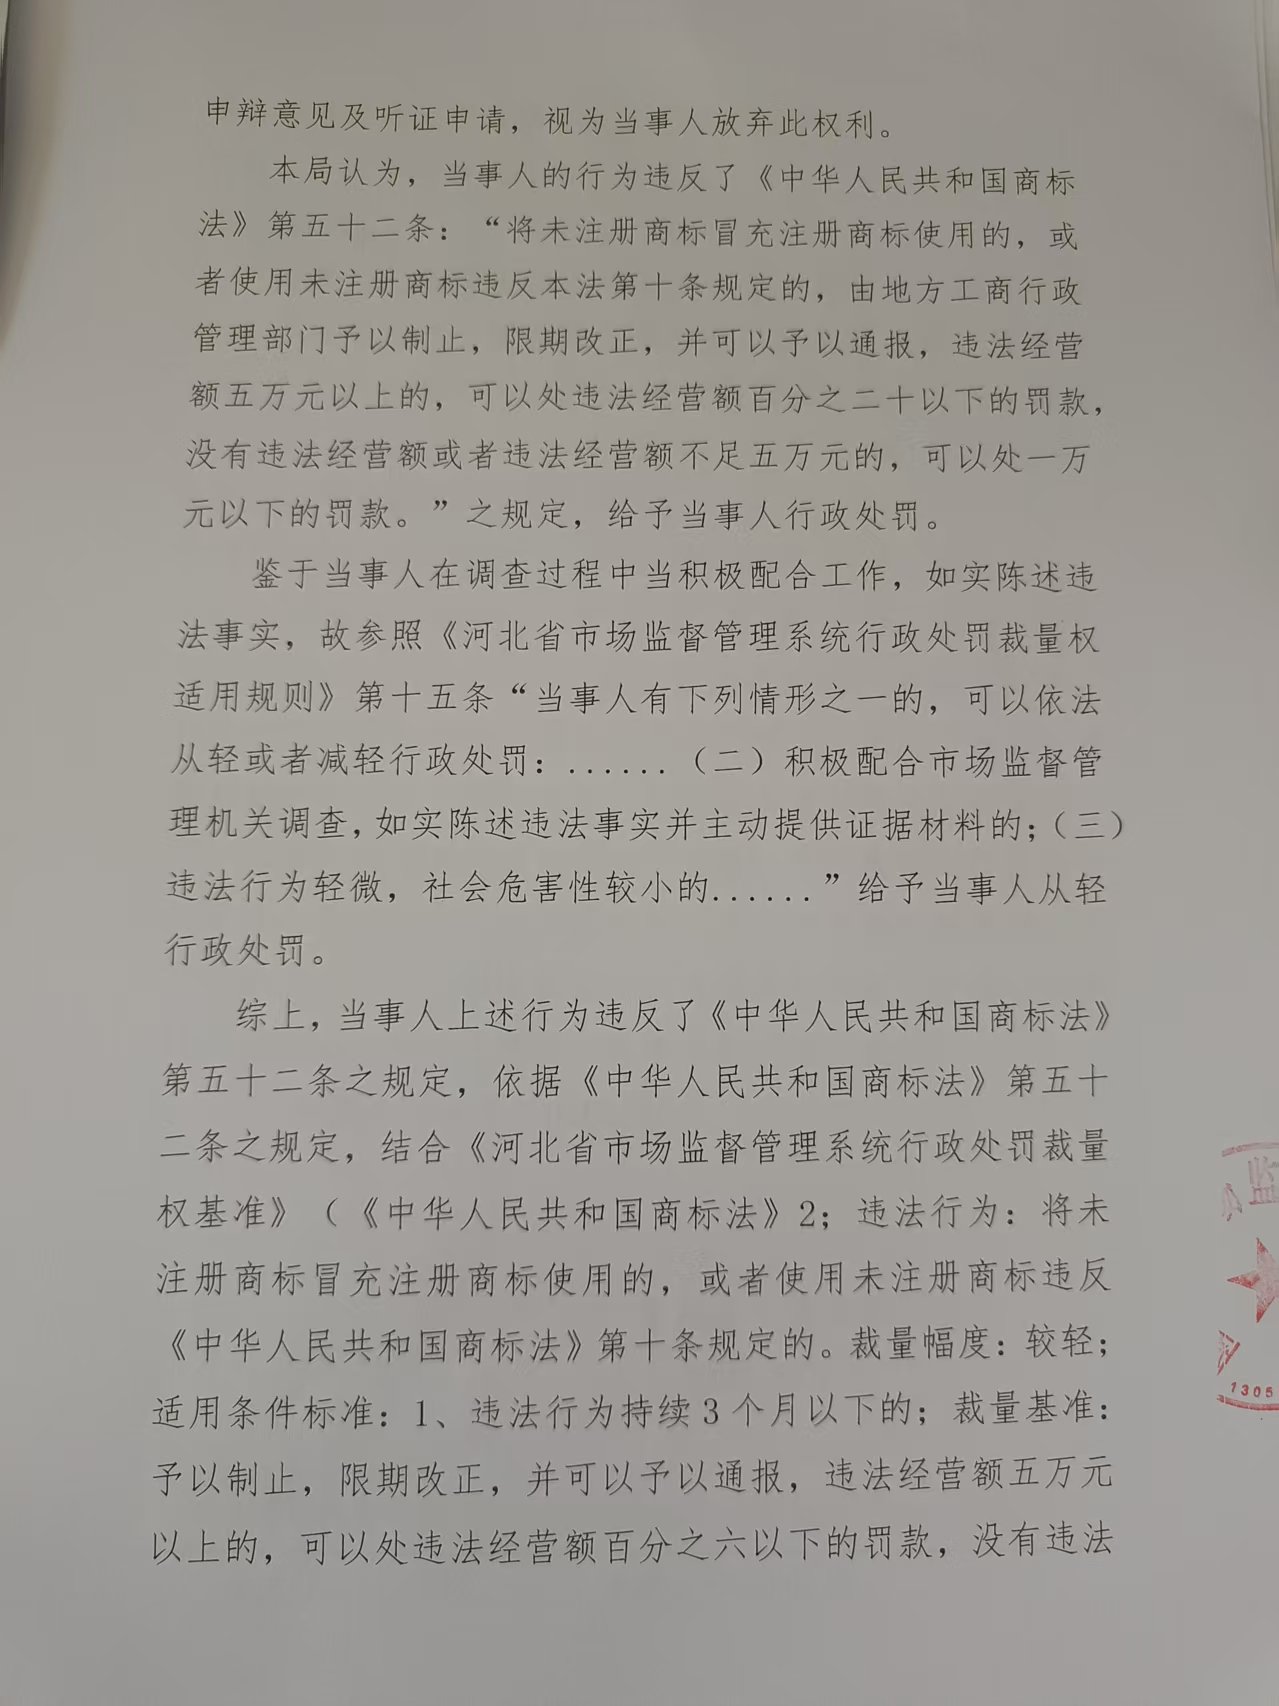 申辩意见及听证申请，视为当事人放弃此权利。
本局认为，当事人的行为违反了《中华人民共和国商标
法》第五十二条：“将未注册商标冒充注册商标使用的，或
者使用未注册商标违反本法第十条规定的，由地方工商行政
管理部门予以制止，限期改正，并可以予以通报，违法经营
额五万元以上的，可以处违法经营额百分之二十以下的罚款，
没有违法经营额或者违法经营额不足五万元的，可以处一万
元以下的罚款。”之规定，给予当事人行政处罚。
鉴于当事人在调查过程中当积极配合工作，如实陈述违
法事实，故参照《河北省市场监督管理系统行政处罚裁量权
适用规则》第十五条“当事人有下列情形之一的，可以依法
从轻或者减轻行政处罚：......（二）积极配合市场监督管
理机关调查，如实陈述违法事实并主动提供证据材料的；（三）
违法行为轻微，社会危害性较小的......”给予当事人从轻
行政处罚。
综上，当事人上述行为违反了《中华人民共和国商标法》
第五十二条之规定，依据《中华人民共和国商标法》第五十
二条之规定，结合《河北省市场监督管理系统行政处罚裁量
权基准》（《中华人民共和国商标法》2；违法行为：将未
注册商标冒充注册商标使用的，或者使用未注册商标违反
《中华人民共和国商标法》第十条规定的。裁量幅度：较轻；
适用条件标准：1、违法行为持续3个月以下的；裁量基准：
予以制止，限期改正，并可以予以通报，违法经营额五万元
以上的，可以处违法经营额百分之六以下的罚款，没有违法
监
1305